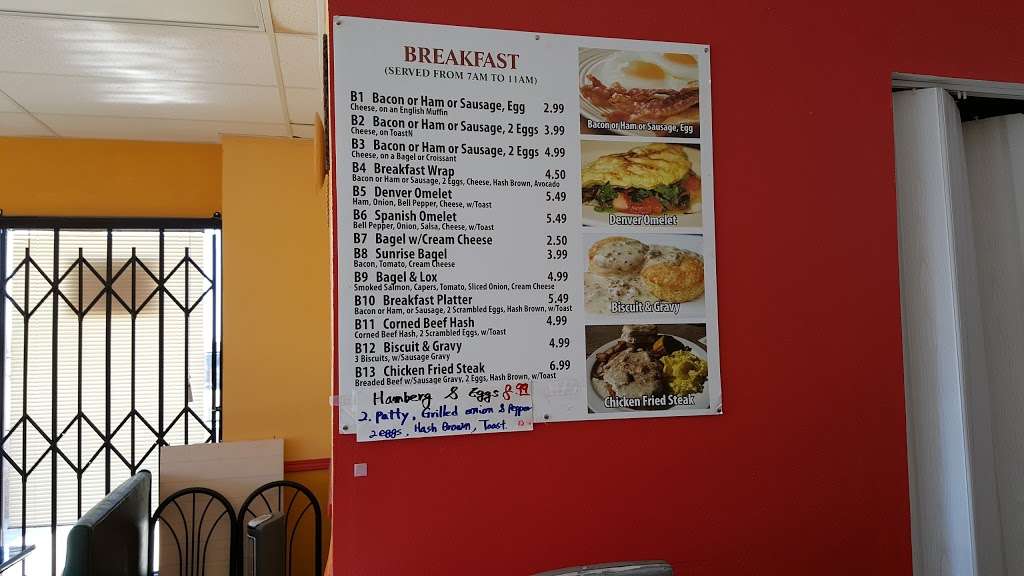 BREAKFAST
(SERVED FROM 7AM TO 11AM)
B1 Bacon or Ham or Sausage, Egg 2.99
Cheese, on an English Muffin
B2 Bacon or Ham or Sausage, 2 Eggs 3.99
Cheese, on ToastN
B3 Bacon or Ham or Sausage, 2 Eggs 4.99
Cheese, on a Bagel or Croissant
B4 Breakfast Wrap 4.50
Bacon or Ham or Sausage, 2 Eggs, Cheese, Hash Brown, Avocado
B5 Denver Omelet 5.49
Ham, Onion, Bell Pepper, Cheese, w/Toast
B6 Spanish Omelet 5.49
Bell Pepper, Onion, Salsa, Cheese, w/Toast
B7 Bagel w/Cream Cheese 2.50
B8 Sunrise Bagel 3.99
Bacon, Tomato, Cream Cheese
B9 Bagel & Lox 4.99
Smoked Salmon, Capers, Tomato, Sliced Onion, Cream Cheese
B10 Breakfast Platter 5.49
Bacon or Ham, or Sausage, 2 Scrambled Eggs, Hash Brown, w/Toast
B11 Corned Beef Hash 4.99
Corned Beef Hash, 2 Scrambled Eggs, w/Toast
B12 Biscuit & Gravy 4.99
3 Biscuits, w/Sausage Gravy
B13 Chicken Fried Steak 6.99
Breaded Beef w/Sausage Gravy, 2 Eggs, Hash Brown, w/Toast
Hamberg & Eggs 8.99
2. Patty, Grilled onion & Pepper
2 eggs, Hash Brown, Toast.
Bacon or Ham or Sausage, Egg
Denver Omelet
Biscuit & Gravy
Chicken Fried Steak